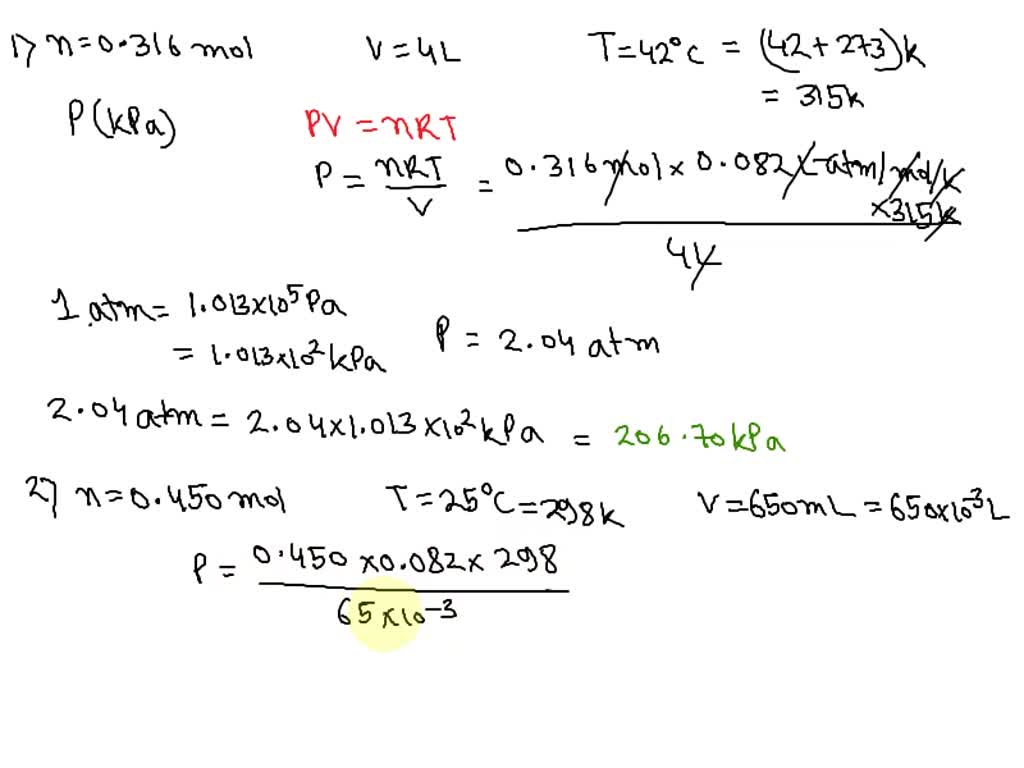 1) n=0.316 mol V=4L T=42°C = (42+273)k
= 315k
P(kPa) PV=nRT
P = nRT/V = 0.316mol × 0.082 L-atm/mol/k ×315k / 4L
1 atm = 1.013×10⁵Pa
= 1.013×10²kPa P = 2.04 atm
2.04 atm = 2.04×1.013×10²kPa = 206.70kPa
2) n=0.450 mol T=25°C=298k V=650mL=650×10⁻³L
P = 0.450×0.082×298 / 65×10⁻³